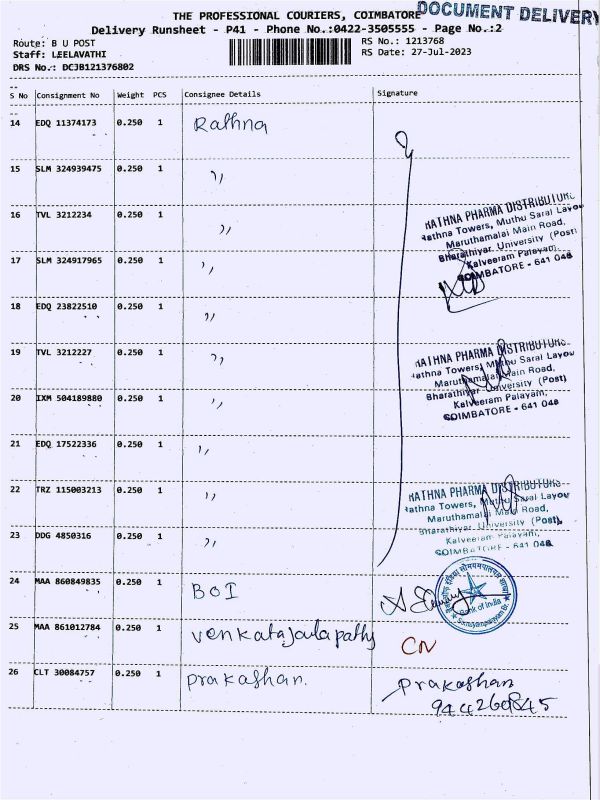 DOCUMENT DELIVERY
THE PROFESSIONAL COURIERS, COIMBATORE
Delivery Runsheet - P41 - Phone No.:0422-3505555 - Page No.:2
Route: B U POST
Staff: LEELAVATHI
DRS No.: DCJB121376802
RS No.: 1213768
RS Date: 27-Jul-2023
S No Consignment No Weight PCS Consignee Details Signature
14 EDQ 11374173 0.250 1 Rathna
15 SLM 324939475 0.250 1 ,,
16 TVL 3212234 0.250 1 ,,
17 SLM 324917965 0.250 1 ,,
18 EDQ 23822510 0.250 1 ,,
19 TVL 3212227 0.250 1 ,,
20 IXM 504189880 0.250 1 ,,
21 EDQ 17522336 0.250 1 ,,
22 TRZ 115003213 0.250 1 ,,
23 DDG 4850316 0.250 1 ,,
24 MAA 860849835 0.250 1 BOI
25 MAA 861012784 0.250 1 venkatajalapathy CN
26 CLT 30084757 0.250 1 prakashan. Prakashan
RATHNA PHARMA DISTRIBUTORS
Rathna Towers, Muthu Sarai Layou
Maruthamalai Main Road,
Bharathiyar University (Post)
Kalveeram Palayam,
COIMBATORE - 641 046
RATHNA PHARMA DISTRIBUTORS
Rathna Towers, Muthu Sarai Layou
Maruthamalai Main Road,
Bharathiyar University (Post)
Kalveeram Palayam,
COIMBATORE - 641 046
RATHNA PHARMA DISTRIBUTORS
Rathna Towers, Muthu Sarai Layou
Maruthamalai Main Road,
Bharathiyar University (Post),
Kalveeram Palayam,
COIMBATORE - 641 046
Bank of India